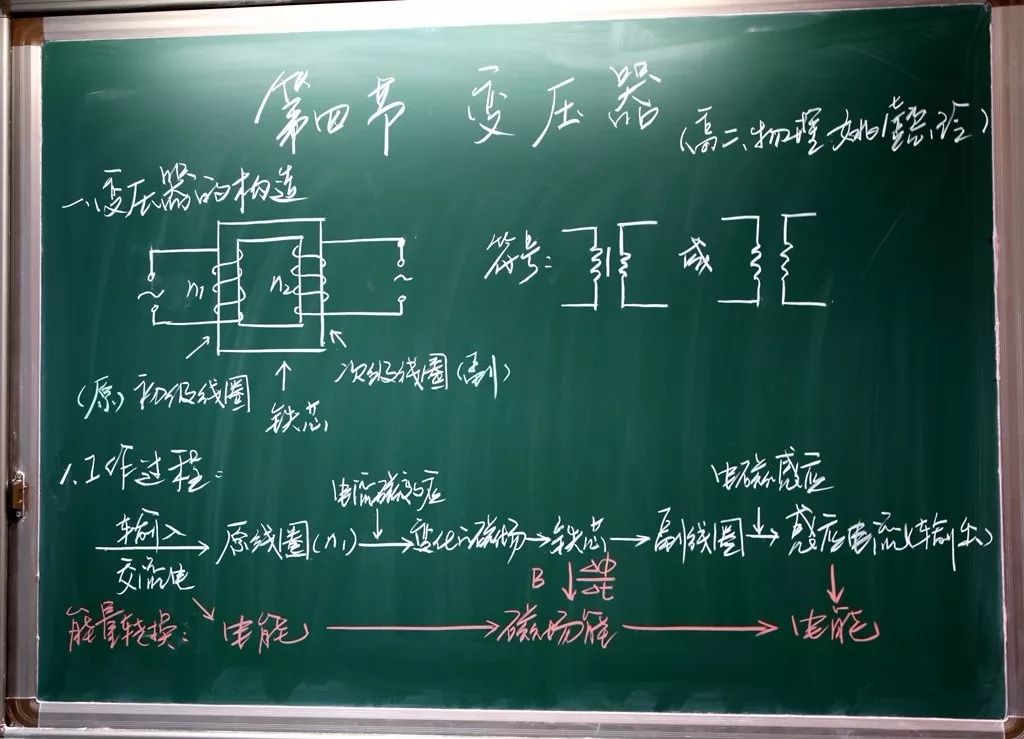 第四节 变压器
(高二物理 姚
一、变压器的构造
n1 n2
符号: 或
(原)初级线圈
次级线圈(副)
铁芯
1.工作过程:
电流磁效应
电磁感应
输入
交流电
原线圈(n1) → 变化磁场 → 铁芯 → 副线圈 → 感应电流(输出)
B ΔΦ/Δt
能量转换: 电能 → 磁场能 → 电能